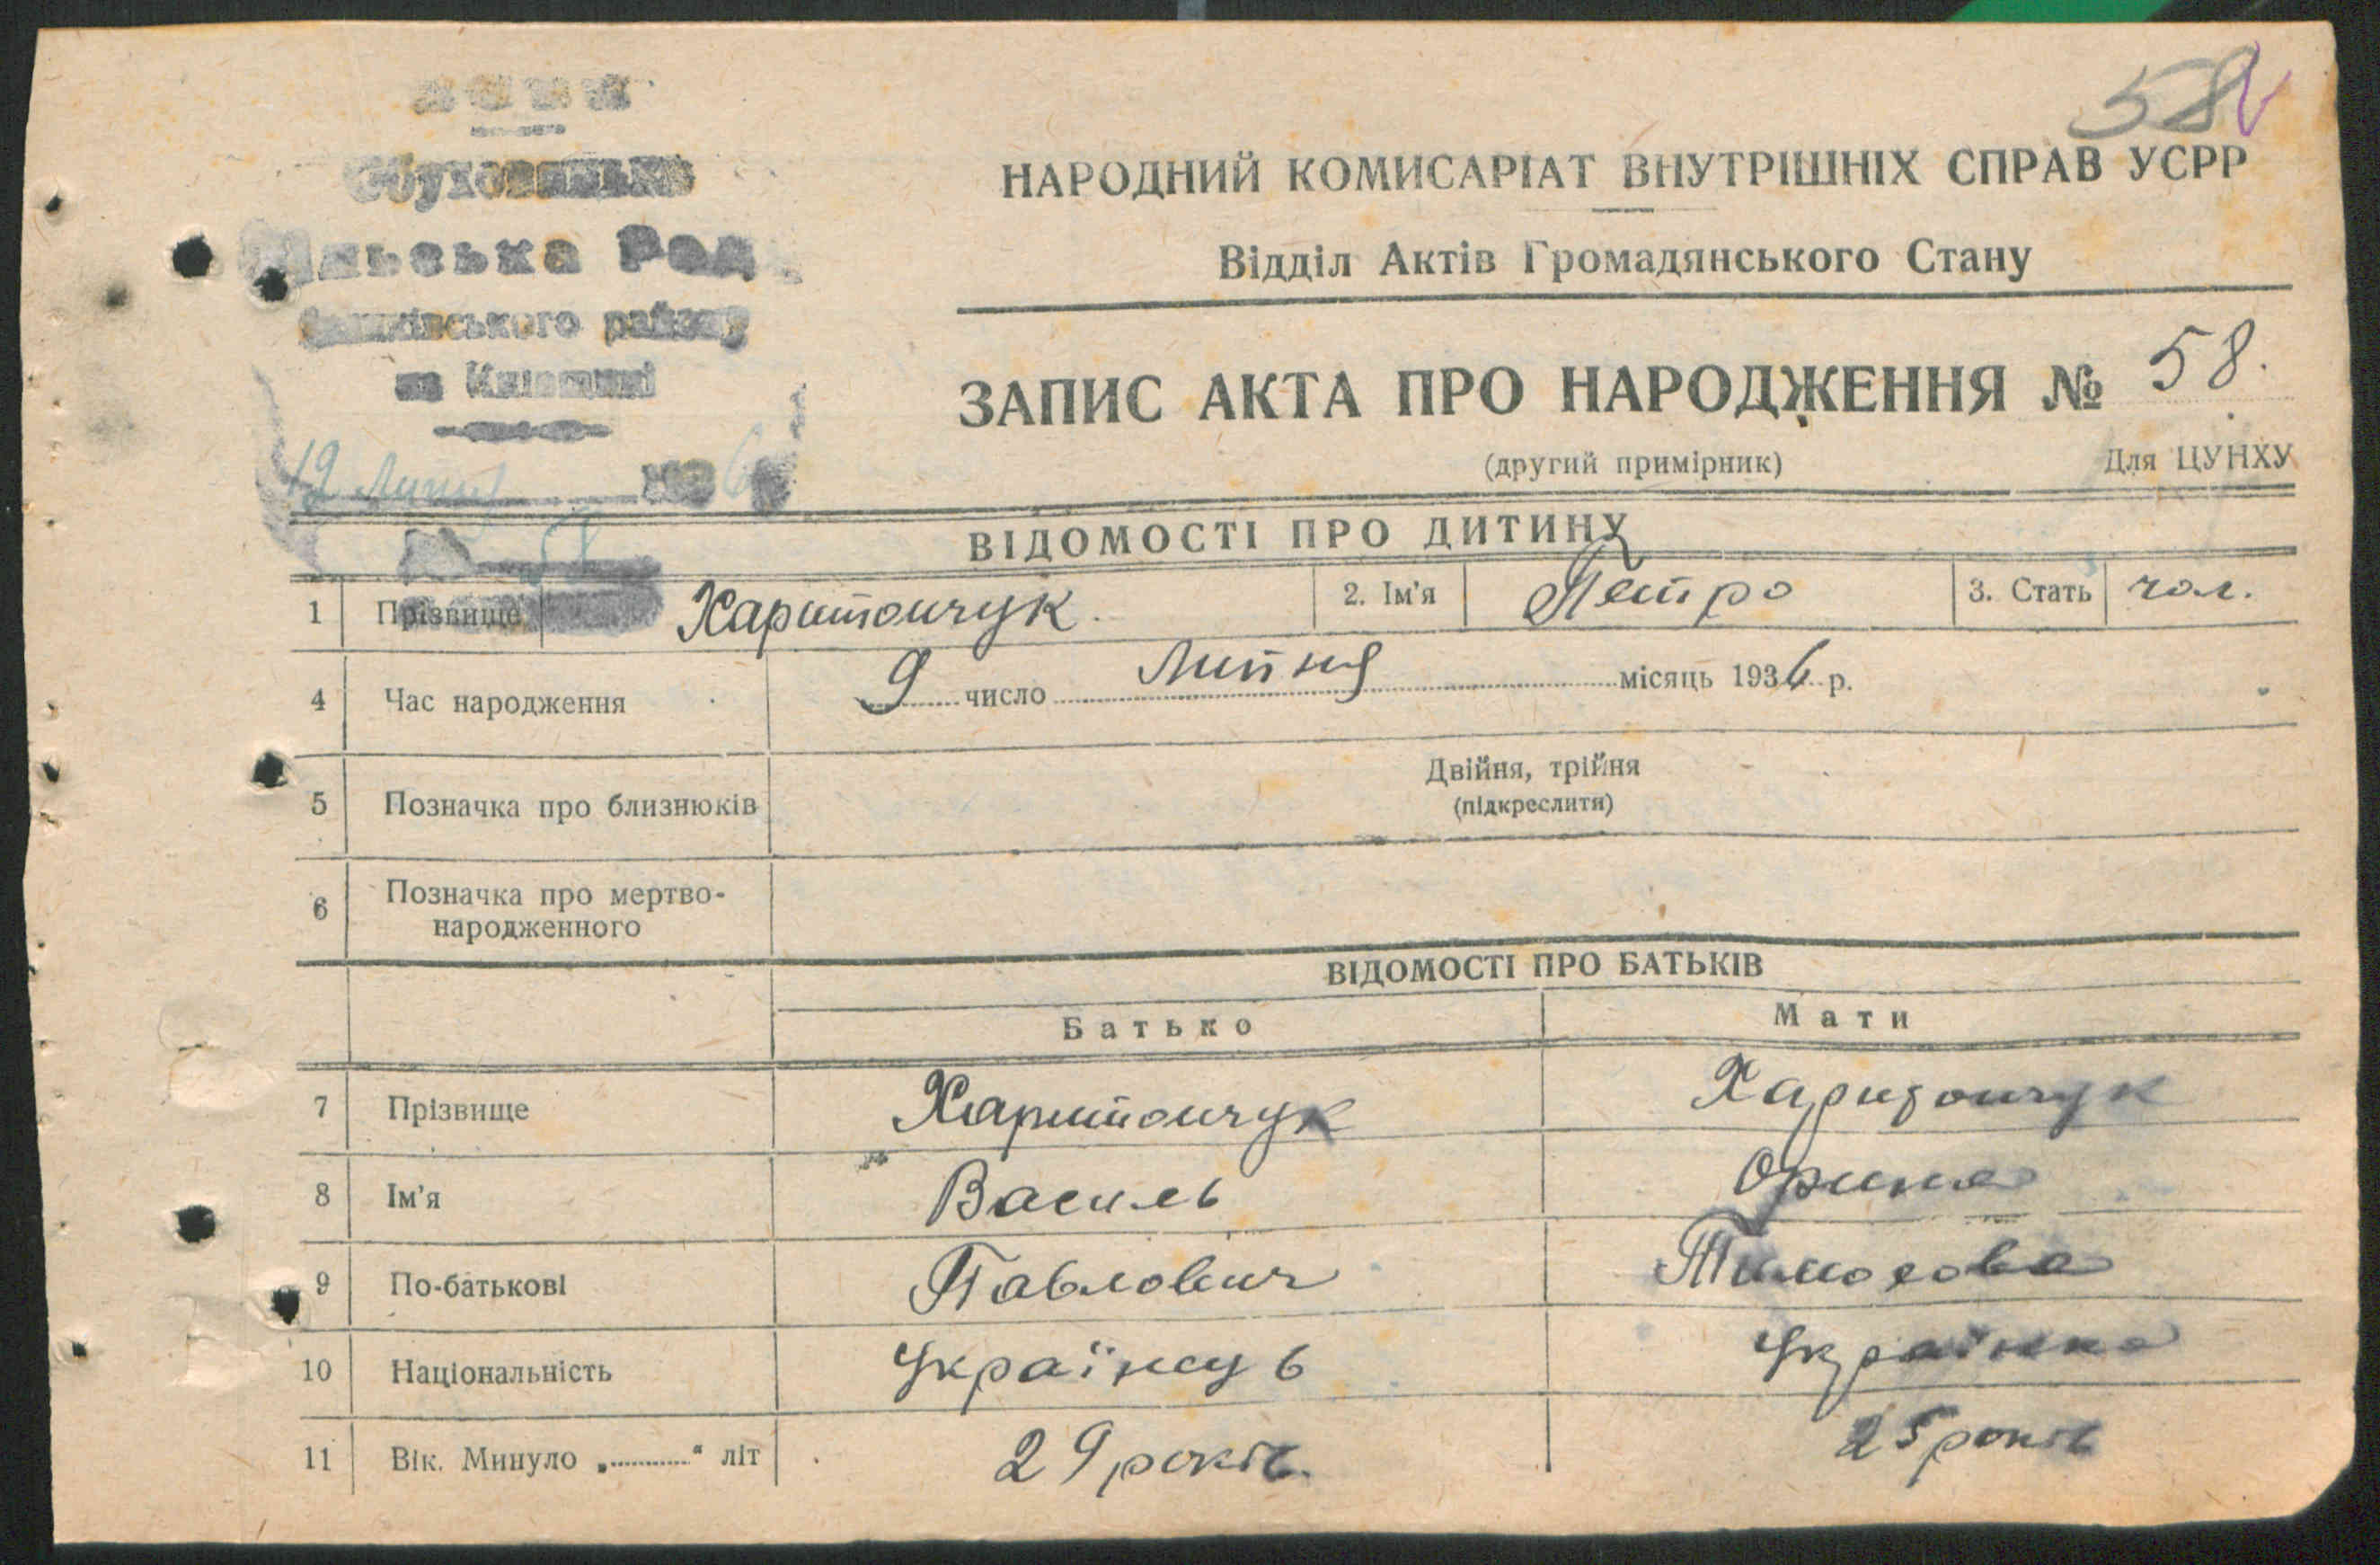 58
НАРОДНИЙ КОМИСАРІАТ ВНУТРІШНІХ СПРАВ УСРР
Відділ Актів Громадянського Стану
ЗАПИС АКТА ПРО НАРОДЖЕННЯ № 58.
(другий примірник) Для ЦУНХУ
УСРР
Обуховицька
Сільська Рада
району
на Київщині
12 Липня 1936
ВІДОМОСТІ ПРО ДИТИНУ
1 Прізвище Харитончук. 2. Ім'я Петро 3. Стать чол.
4 Час народження 9 число Липня місяць 1936 р.
5 Позначка про близнюків Двійня, трійня
(підкреслити)
6 Позначка про мертво-
народженного
ВІДОМОСТІ ПРО БАТЬКІВ
Батько Мати
7 Прізвище Харитончук Харитончук
8 Ім'я Василь Орина
9 По-батькові Павлович
10 Національність Українець Українка
11 Вік. Минуло „..........“ літ 29 років. 25 років